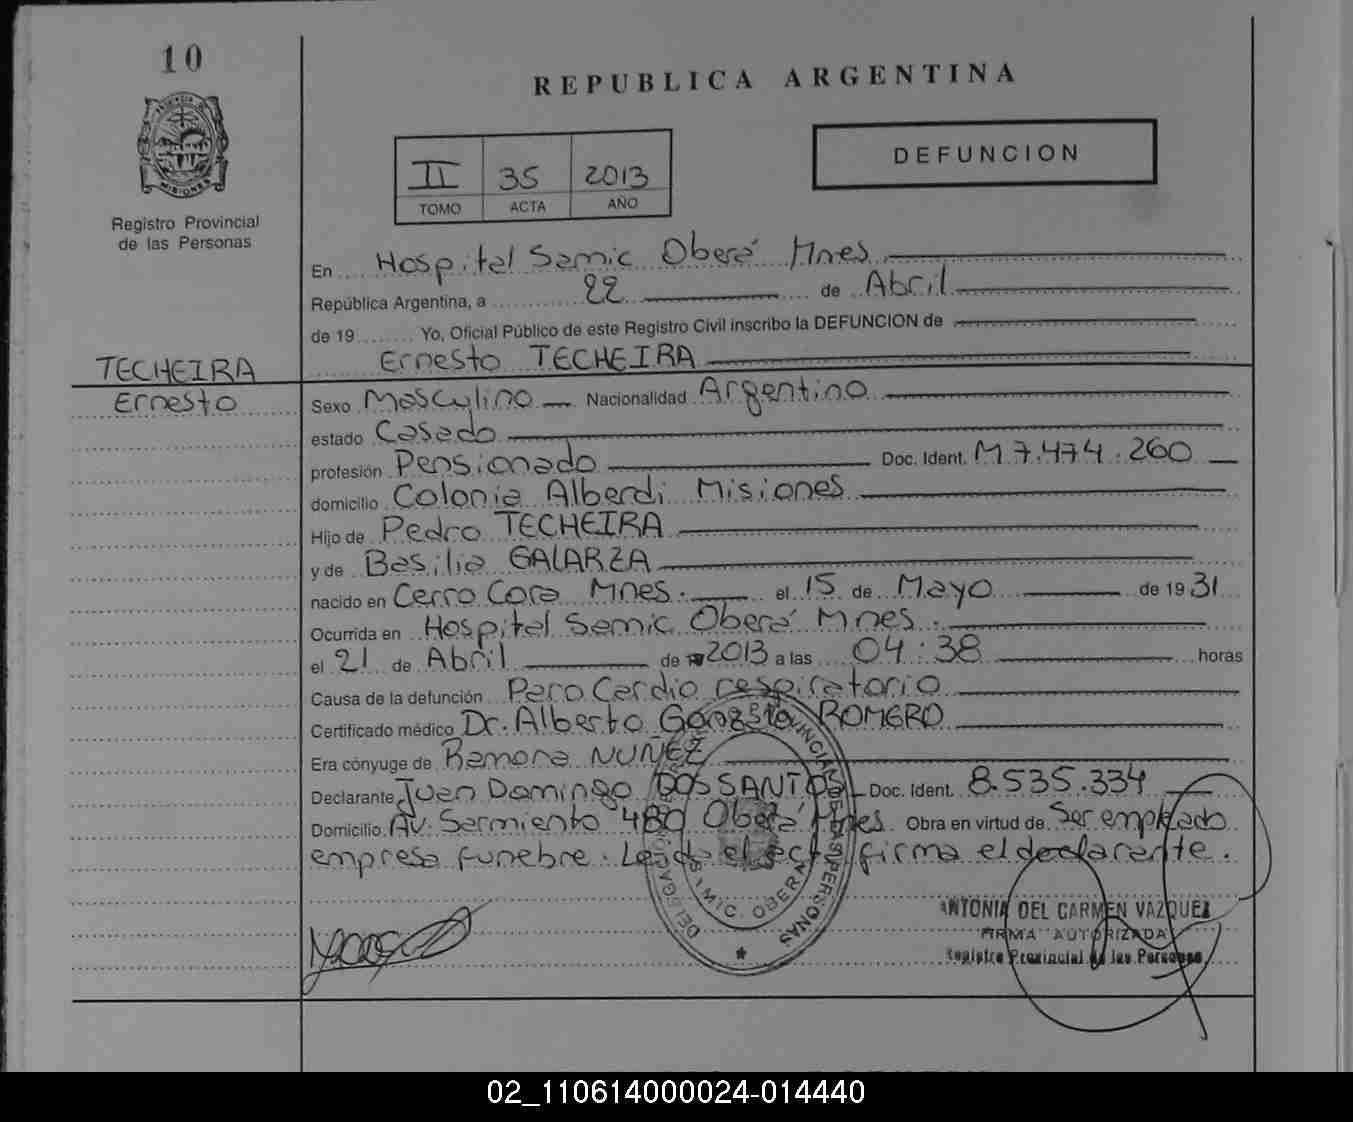 10
REPUBLICA ARGENTINA
MISIONES
Registro Provincial
de las Personas
II 35 2013
TOMO ACTA AÑO
DEFUNCION
En Hospital Samic Oberá Mnes
República Argentina, a 22 de Abril
de 19 Yo, Oficial Público de este Registro Civil inscribo la DEFUNCION de
TECHEIRA Ernesto TECHEIRA
Ernesto Sexo Masculino Nacionalidad Argentino
estado Casado
profesión Pensionado Doc. Ident. M 7.474.260
domicilio Colonia Alberdi Misiones
Hijo de Pedro TECHEIRA
y de Basilia GALARZA
nacido en Cerro Cora Mnes. el 15 de Mayo de 1931
Ocurrida en Hospital Samic Oberá Mnes.
el 21 de Abril de 2013 a las 04:38 horas
Causa de la defunción Paro Cardio respiratorio
Certificado médico Dr. Alberto ROMERO
Era cónyuge de Ramona NUÑEZ
Declarante Juan Domingo DOS SANTOS Doc. Ident. 8.535.334
Domicilio Av. Sarmiento 480 Oberá Mnes Obra en virtud de Ser empleado
empresa funebre. Leida el acta firma el declarante.
ANTONIA DEL CARMEN VAZQUEZ
FIRMA AUTORIZADA
Registro Provincial de las Personas
02_110614000024-014440